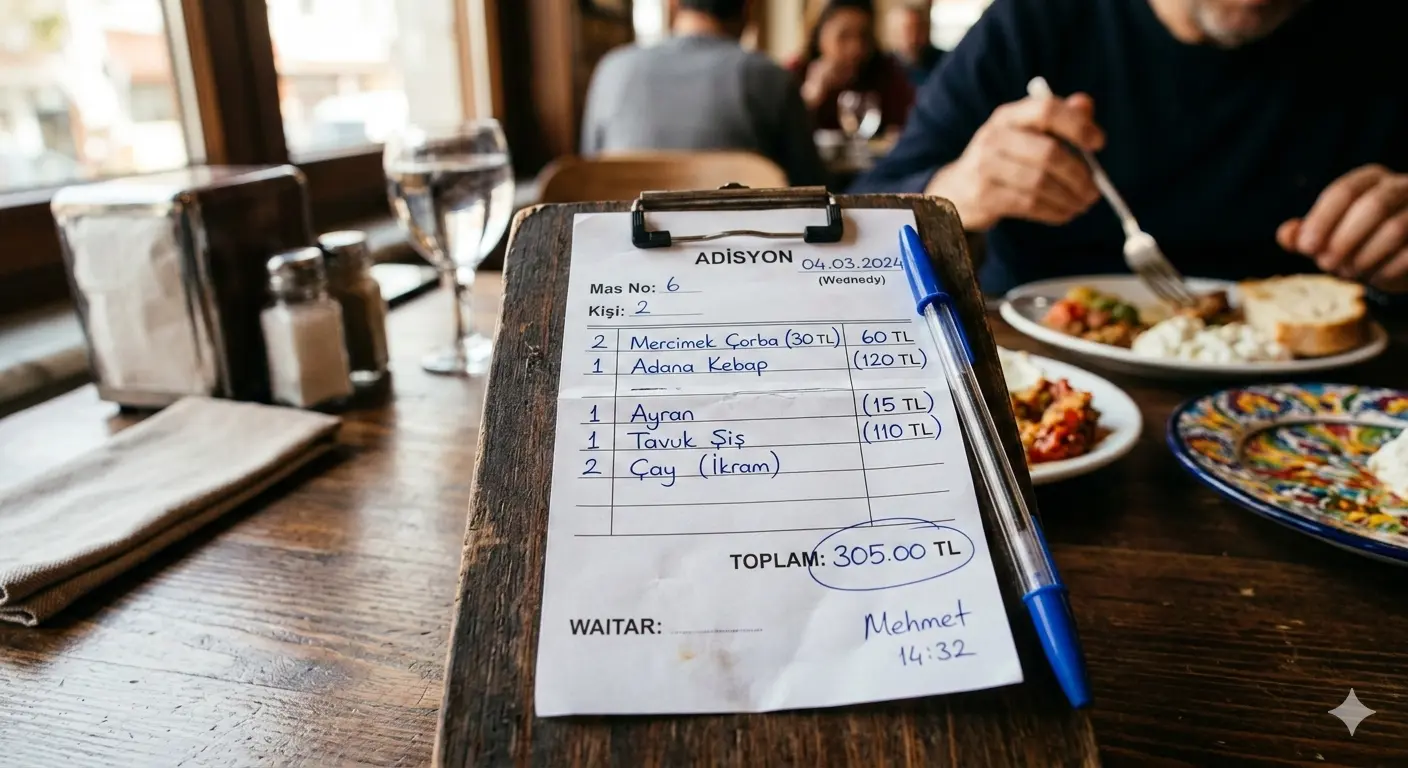 ADİSYON 04.03.2024
(Wednedy)
Mas No: 6
Kişi: 2
2 Mercimek Çorba (30 TL) 60 TL
1 Adana Kebap (120 TL)
1 Ayran (15 TL)
1 Tavuk Şiş (110 TL)
2 Çay (İkram)
TOPLAM: 305.00 TL
WAITAR:
Mehmet
14:32